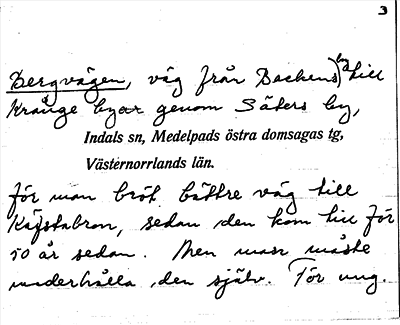 3
Bergvägen, väg från Backens by till
Krånge byar genom Säters by,
Indals sn, Medelpads östra domsagas tg,
Västernorrlands län.
för man bröt bättre väg till
Käfstabron, sedan den kom till för
50 år sedan. Men man måste
underhålla den själv. För ung.